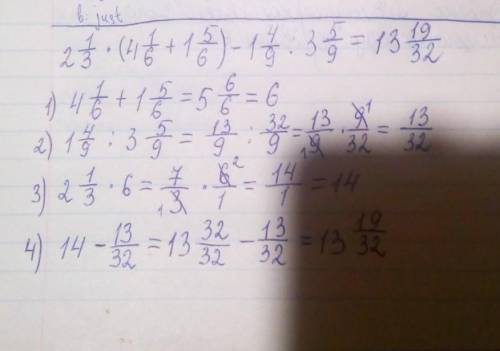 в: just
2 1/3 · (4 1/6 + 1 5/6) - 1 4/9 : 3 5/9 = 13 19/32
1) 4 1/6 + 1 5/6 = 5 6/6 = 6
2) 1 4/9 : 3 5/9 = 13/9 : 32/9 = 13/9 1 · 9 1/32 = 13/32
3) 2 1/3 · 6 = 7/3 1 · 6 2/1 = 14/1 = 14
4) 14 - 13/32 = 13 32/32 - 13/32 = 13 19/32